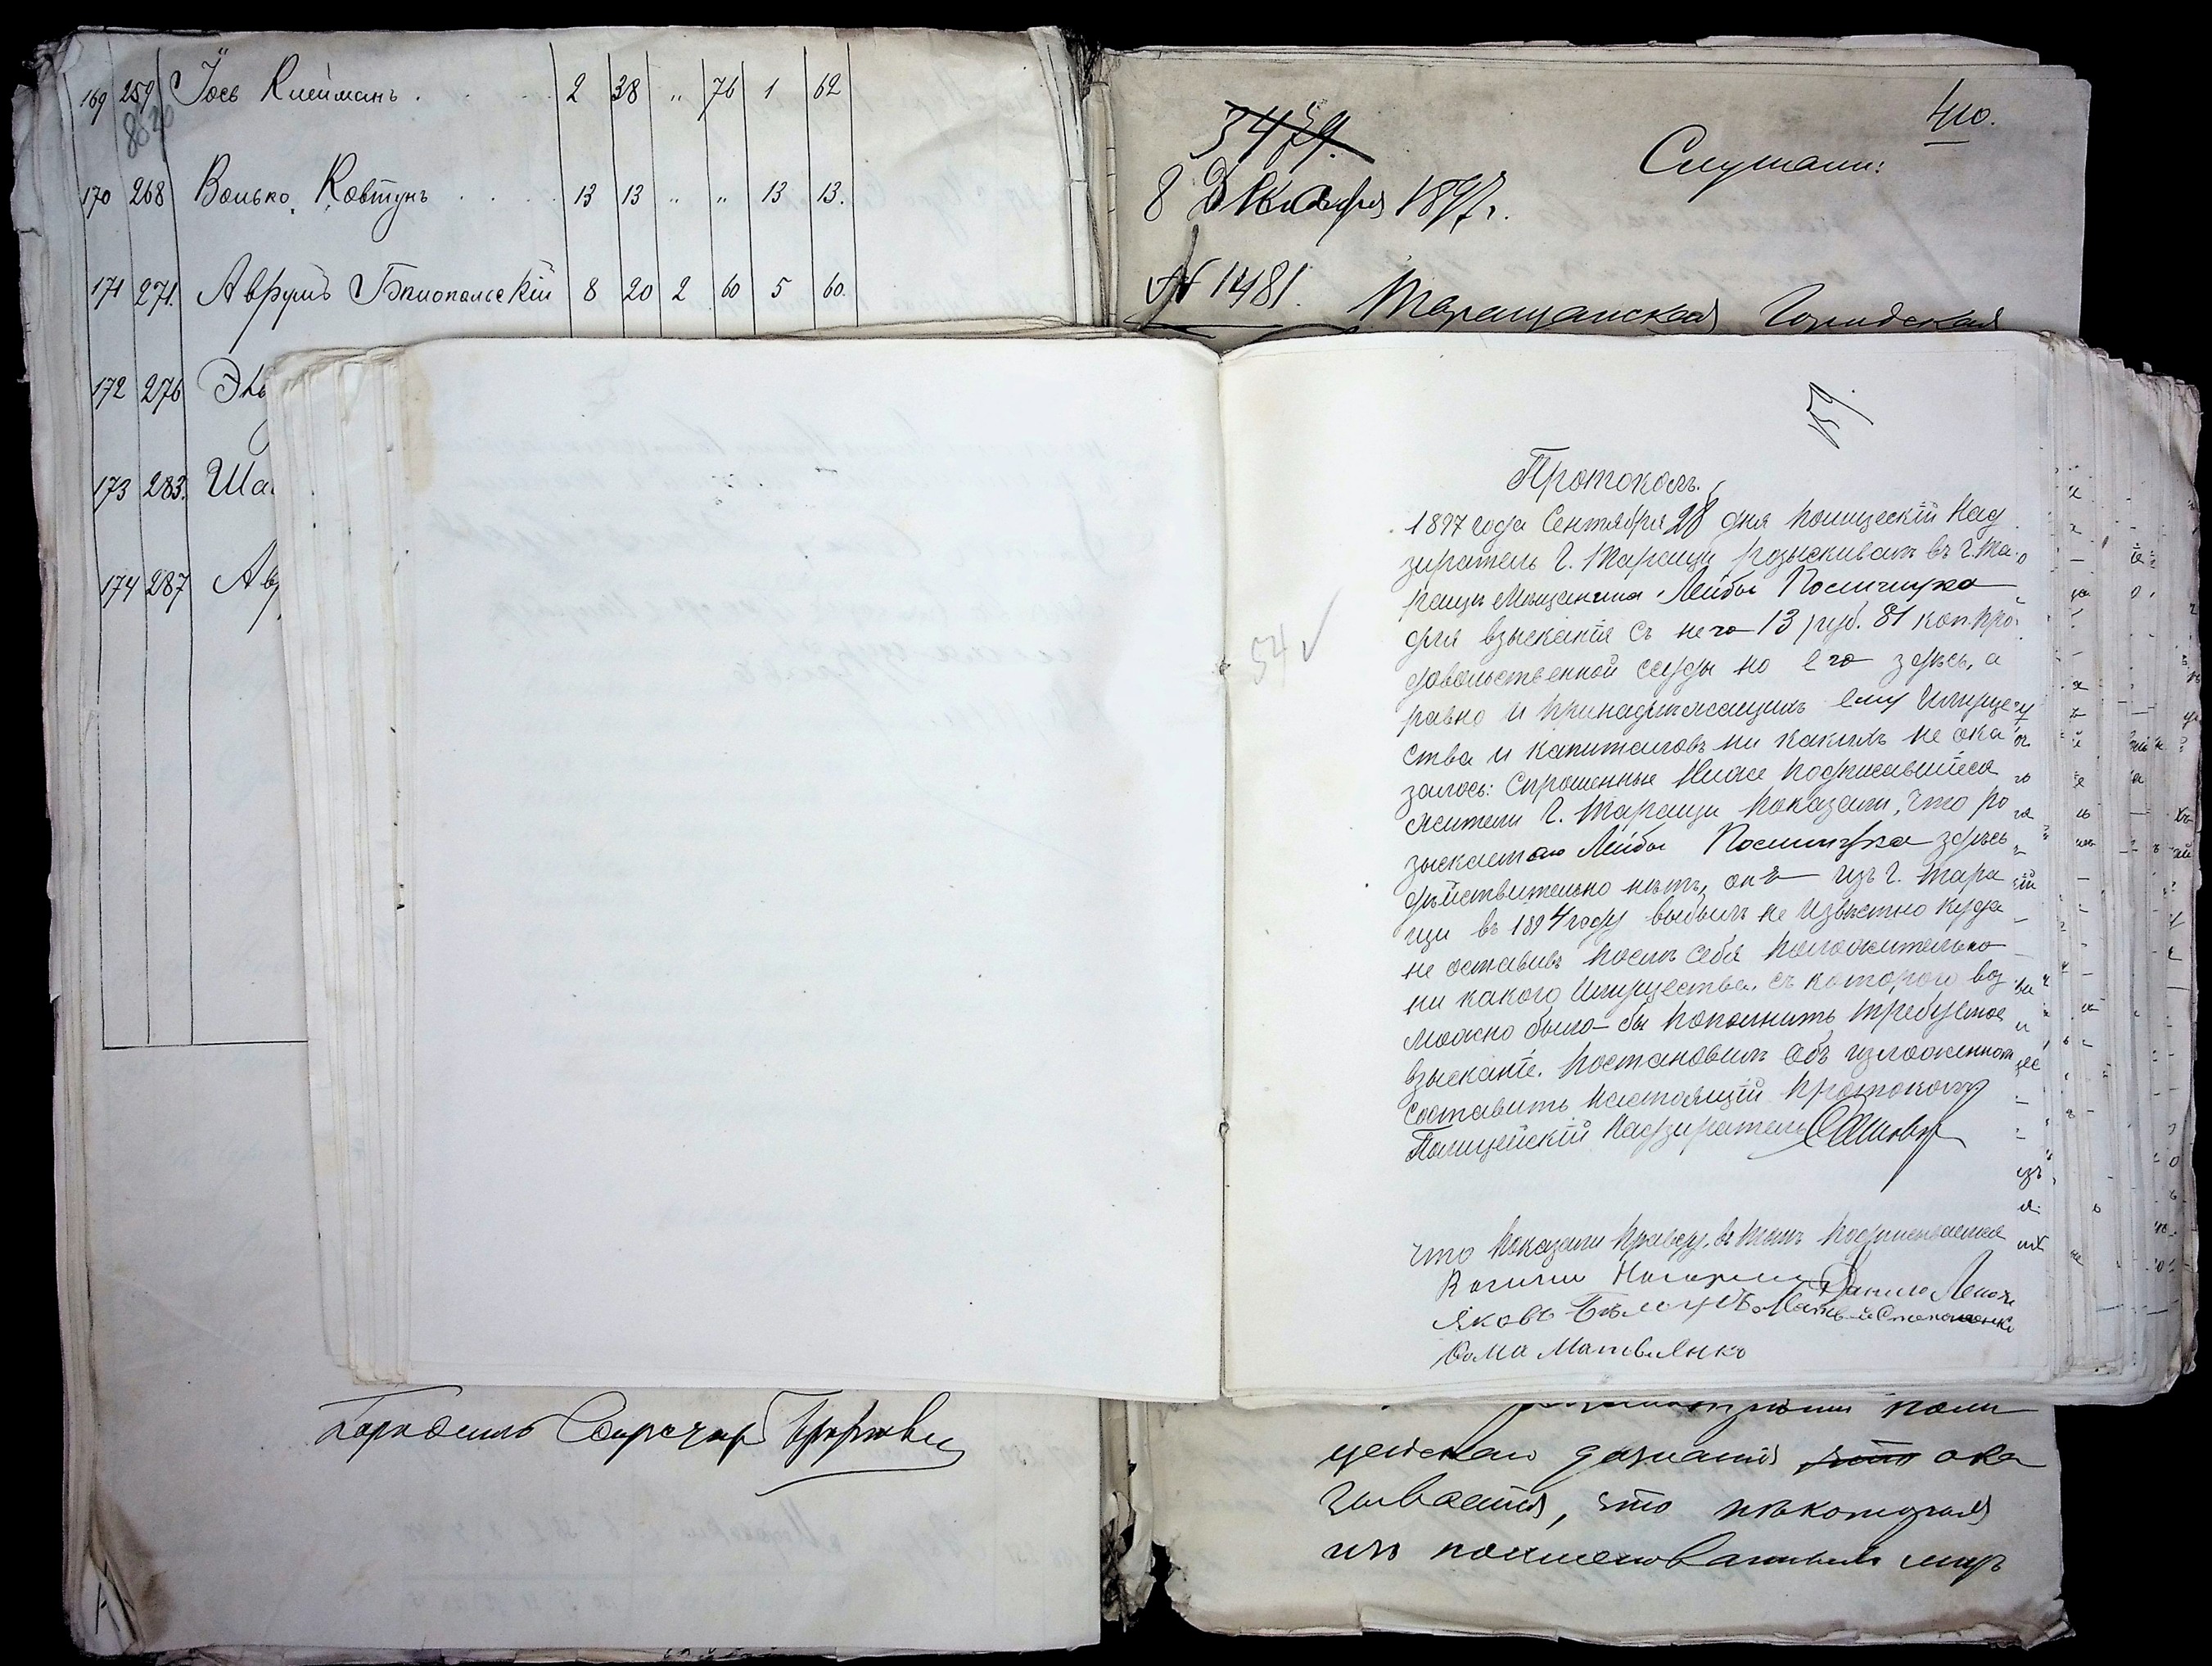 169 259 Іось Клейманъ . . . . 2 38 „ 76 1 62
8820
170 268 Волько Ковтунъ . . . . 13 13 „ „ 13 13.
171 271. Аврумъ Бѣлопольскій 8 20 2 60 5 60.
172 276 Эль
173 283. Ша
174 287 Ав
3479.
410.
Слушали:
8 Декабря 1897 г.
№ 1481.
Таращанская Городская
159.
54 ✓
Протоколъ.
1897 года Сентября 28 дня Полицескій Над
зиратель г. Таращи розыскивалъ въ г. Та
ращѣ Мѣщанина Лейбы
для взысканія съ него 13 руб. 81 коп. про
довольственной ссуды но его здѣсь, а
равно и принадлежащихъ ему Имуще
ства и капиталовъ ни какихъ не ока
залось: Спрошенные Ниже подписавшіеся
жители г. Таращи показали, что ро
зыскиваемаго Лейбы здѣсь
дѣйствительно нѣтъ, онъ изъ г. Тара
щи въ 1894 году выбылъ не Извѣстно куда
не оставивъ послѣ себя положительно
ни какого Имущества, съ котораго воз
можно было бы пополнить требуемое
взысканіе. Постановилъ объ изложенномъ
составить настоящій протоколъ
Полицейскій Надзиратель
Что показали правду, въ томъ подписываемся
Данило
Яковъ
Фома Матвіенко
поли
цейскаго дознанія что ока
зывается, что нѣкоторыя
изъ поименованныхъ лицъ